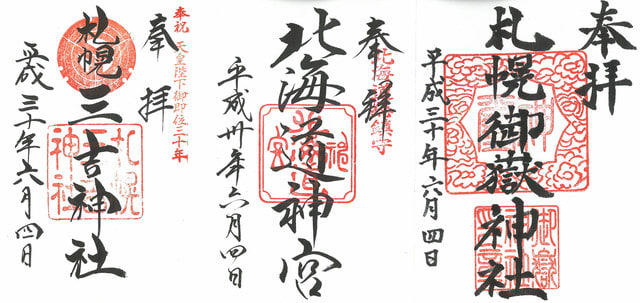 奉祝 天皇陛下御即位三十年
奉拝
札幌三吉神社
平成三十年六月四日
札幌
三吉
神社
奉拝
北海道神宮
平成卅年六月四日
奉拝
札幌御嶽神社
平成三十年六月四日